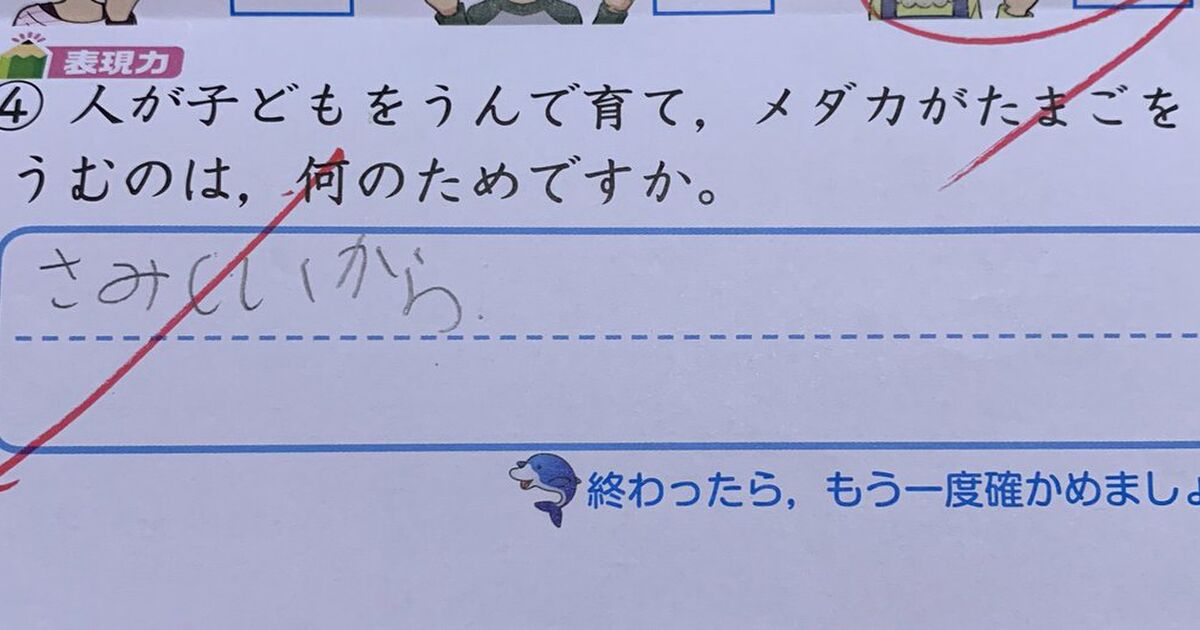 表現力
④ 人が子どもをうんで育て，メダカがたまごを
うむのは，何のためですか。
さみしいから.
終わったら，もう一度確かめましょ